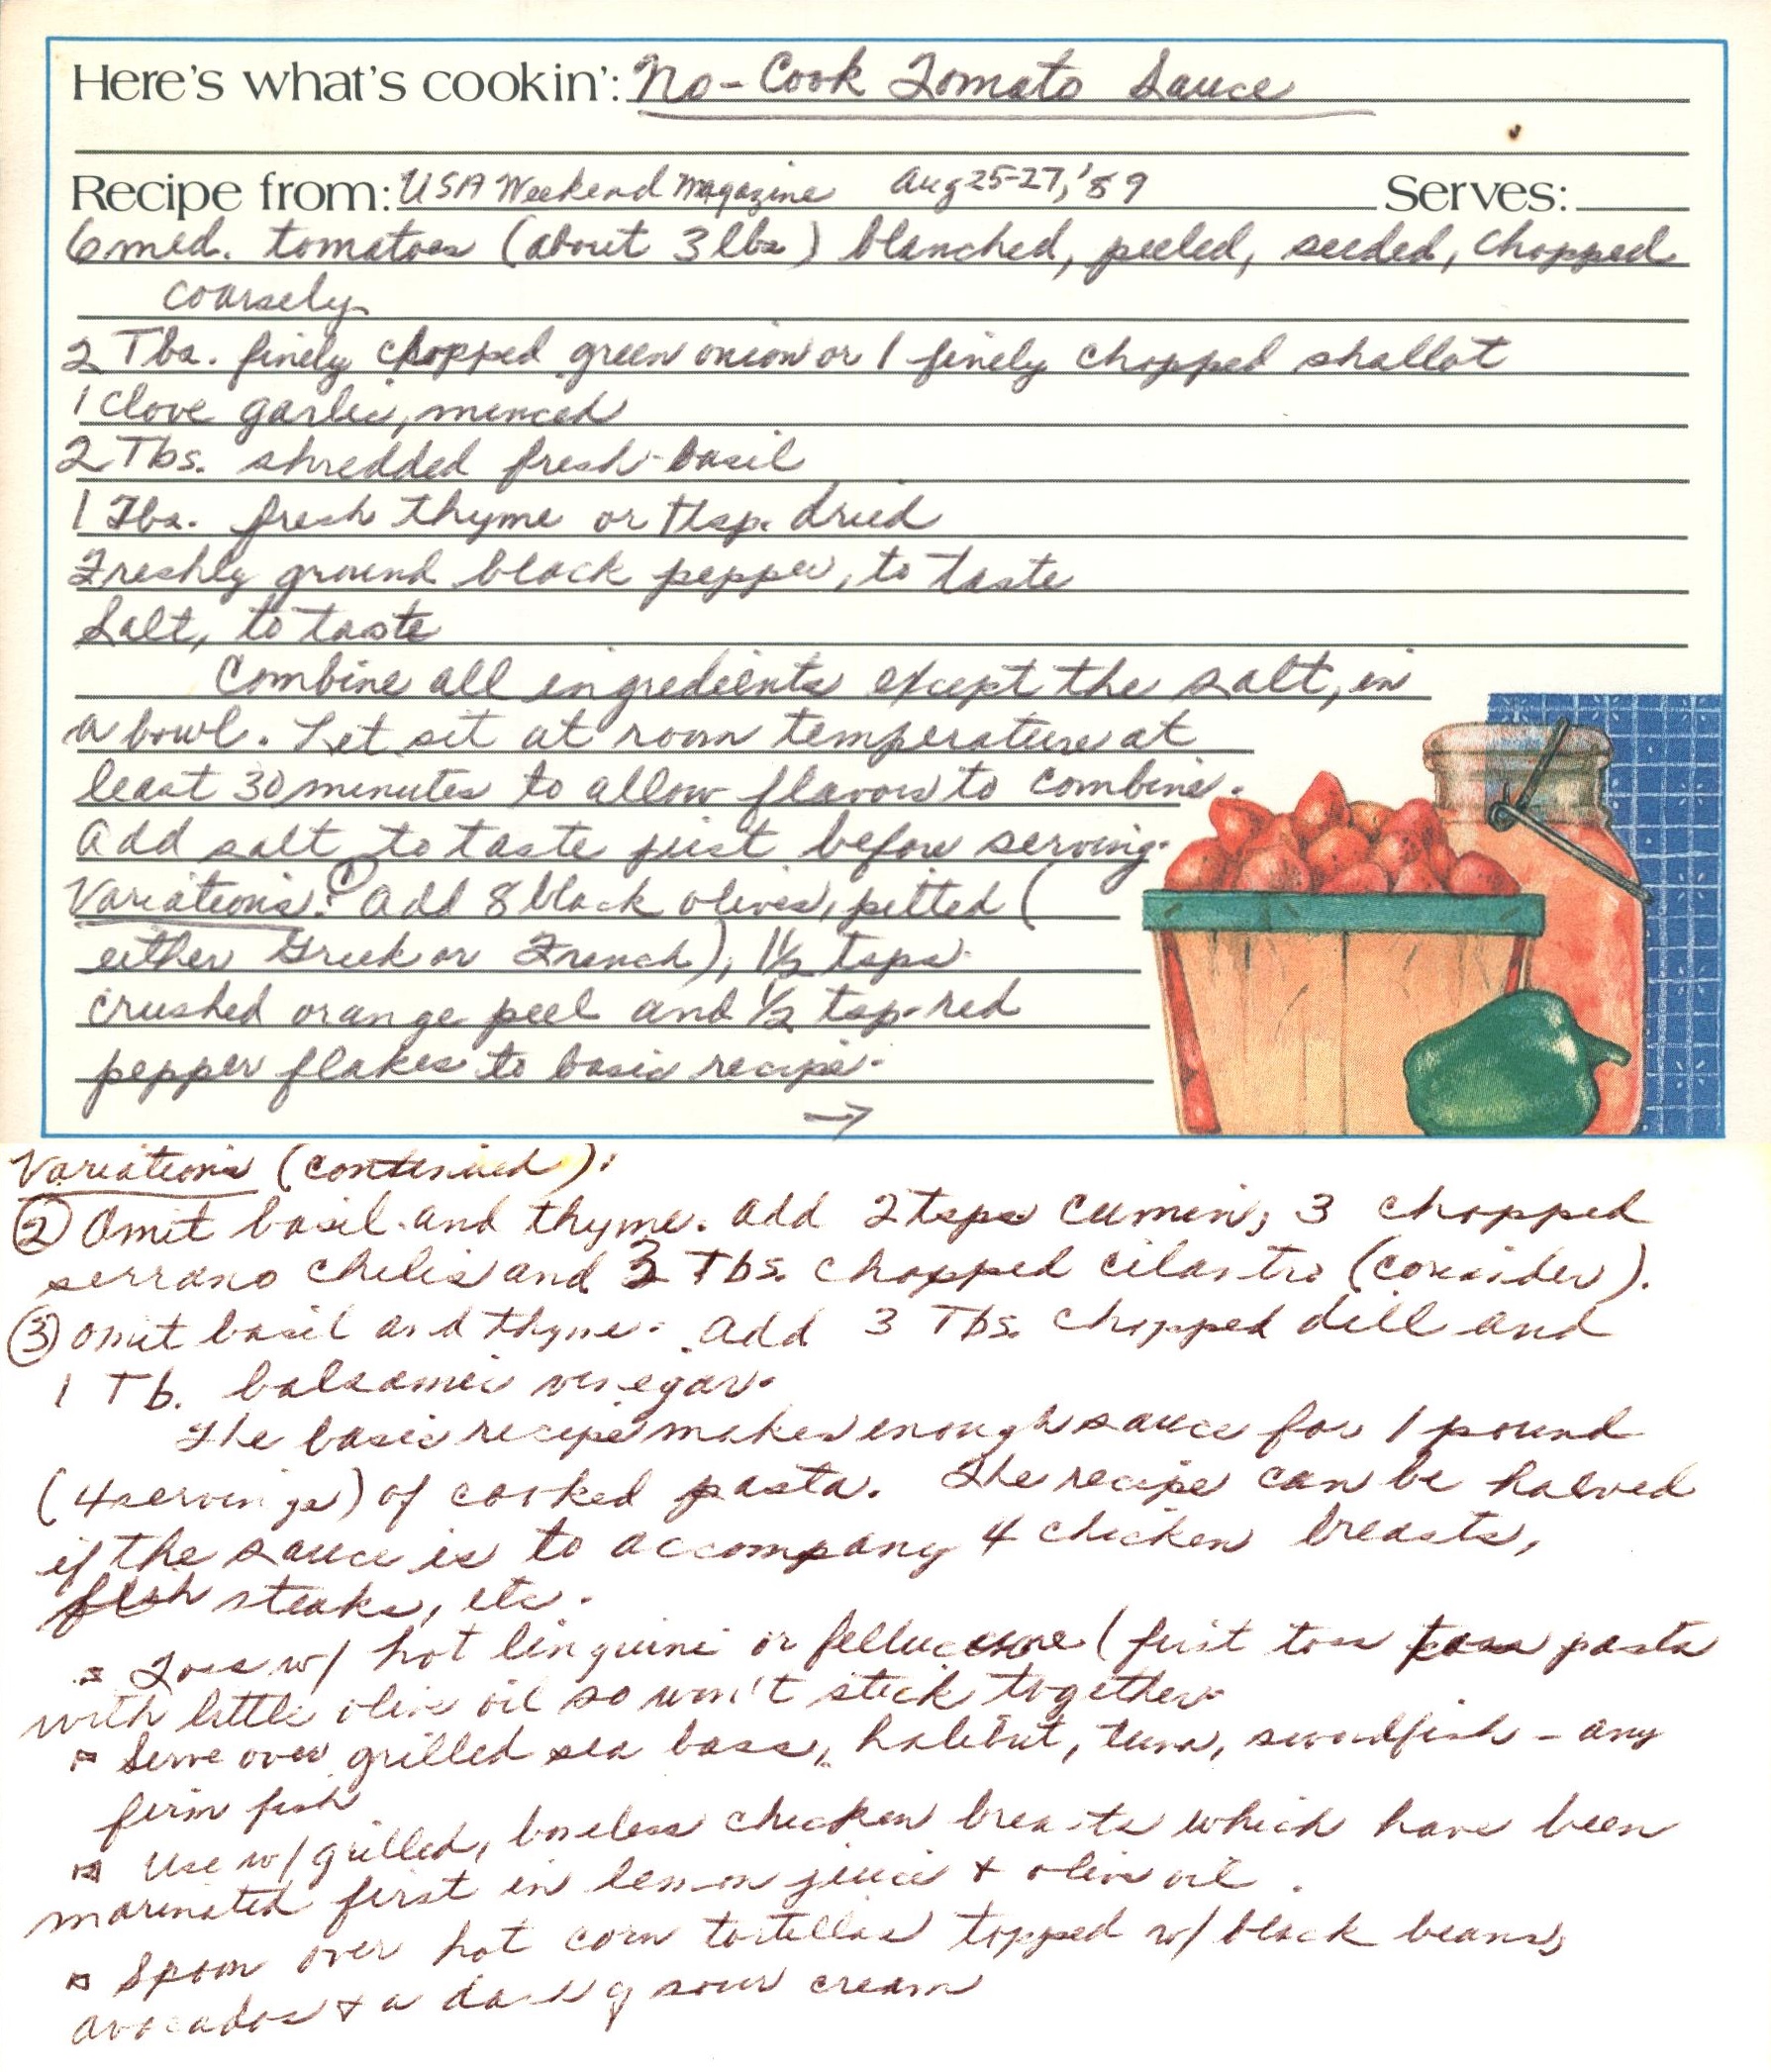 Here's what's cookin': No-Cook Tomato Sauce
Recipe from: USA Weekend Magazine Aug 25-27, '89 Serves:
6 med. tomatoes (about 3 lbs) blanched, peeled, seeded, chopped
coarsely
2 Tbs. finely chopped green onion or 1 finely chopped shallot
1 clove garlic, minced
2 Tbs. shredded fresh basil
1 Tbs. fresh thyme or 1 tsp. dried
Freshly ground black pepper, to taste
Salt, to taste
Combine all ingredients except the salt, in
a bowl. Let sit at room temperature at
least 30 minutes to allow flavors to combine.
Add salt to taste just before serving.
Variations: ① Add 8 black olives, pitted (
either Greek or French), 1½ tsps.
crushed orange peel and ½ tsp. red
pepper flakes to basic recipe.
→
Variations (continued):
② Omit basil and thyme. Add 2 tsps cumin, 3 chopped
serrano chilis and 3 Tbs. chopped cilantro (coriander).
③ Omit basil and thyme. Add 3 Tbs. chopped dill and
1 Tb. balsamic vinegar.
The basic recipe makes enough sauce for 1 pound
(4 servings) of cooked pasta. The recipe can be halved
if the sauce is to accompany 4 chicken breasts,
fish steaks, etc.
Toss w/ hot linguini or fettuccine (first toss pasta
with little olive oil so won't stick together.
Serve over grilled sea bass, halibut, tuna, swordfish - any
firm fish
Use w/ grilled, boneless chicken breasts which have been
marinated first in lemon juice & olive oil.
Spoon over hot corn tortillas topped w/ black beans,
avocados & a dash of sour cream